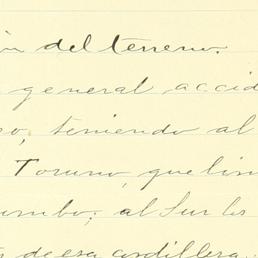 ón del terreno.
general accid
o, teniendo al
Toruno, que lin
umbo; al Sur los
de esa cordillera